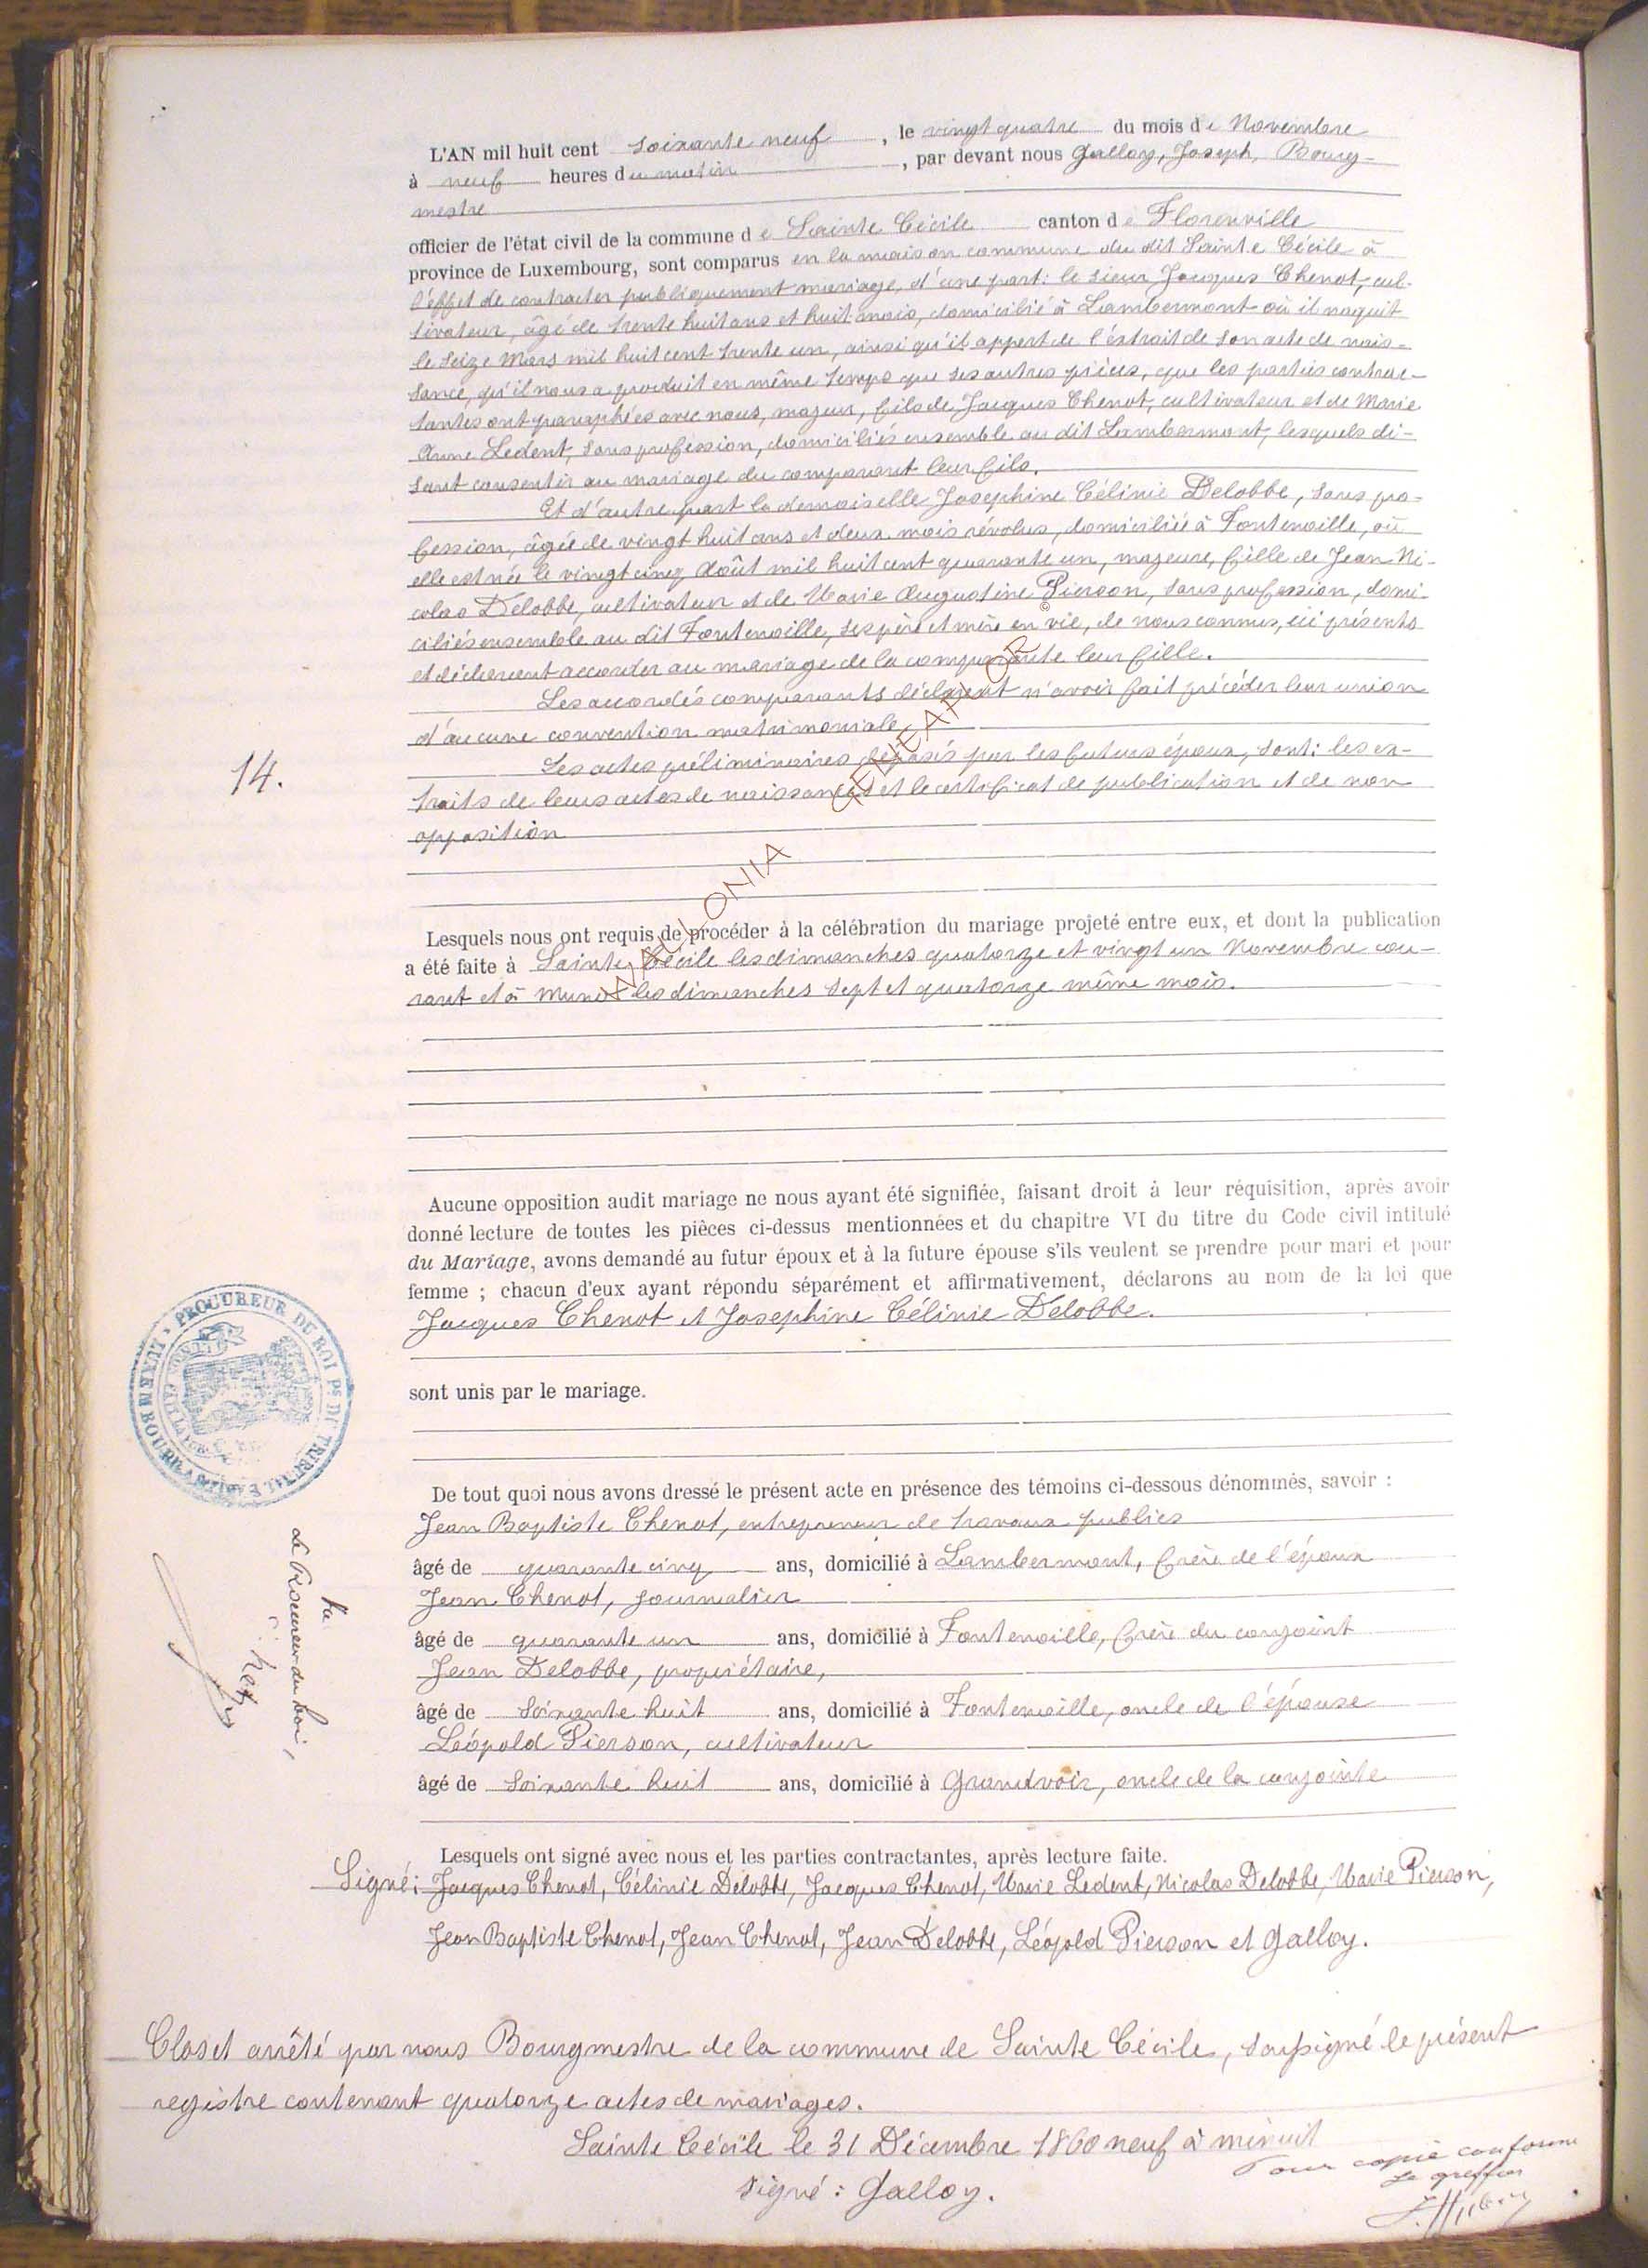 L'AN mil huit cent soixante neuf, le vingt quatre du mois de Novembre
à neuf heures du matin, par devant nous Galloy, Joseph, Bourg-
mestre
officier de l'état civil de la commune de Sainte Cécile canton de Florenville
province de Luxembourg, sont comparus en la maison commune du dit Sainte Cécile à
l'effet de contracter publiquement mariage, d'une part: le sieur Jacques Chenot, cul-
tivateur, âgé de trente huit ans et huit mois, domicilié à Lambermont où il naquit
le seize Mars mil huit cent trente un, ainsi qu'il appert de l'extrait de son acte de nais-
sance, qu'il nous a produit en même temps que ses autres pièces, que les parties contrac-
tantes ont paraphées avec nous, majeur, fils de Jacques Chenot, cultivateur et de Marie
Anne Ledent, sans profession, domiciliés ensemble au dit Lambermont, lesquels di-
sent consentir au mariage du comparant leur fils.
Et d'autre part la demoiselle Josephine Célinie Delobbe, sans pro-
fession, âgée de vingt huit ans et deux mois révolus, domiciliée à Fontenoille, où
elle est née le vingt cinq Août mil huit cent quarante un, majeure, fille de Jean Ni-
colas Delobbe, cultivateur et de Marie Augustine Pierson, sans profession, domi-
ciliés ensemble au dit Fontenoille, ses père et mère en vie, de nous connus, ici présents
et déclarent accorder au mariage de la comparante leur fille.
Les accordés comparants déclarent n'avoir fait précéder leur union
d'aucune convention matrimoniale
14.
Les actes préliminaires déposés par les futurs époux, sont: les ex-
traits de leurs actes de naissances et le certificat de publication et de non
opposition
© GENEANOR WALLONIA
Lesquels nous ont requis de procéder à la célébration du mariage projeté entre eux, et dont la publication
a été faite à Sainte Cécile les dimanches quatorze et vingt un Novembre cou-
rant et à Muno les dimanches sept et quatorze même mois.
Aucune opposition audit mariage ne nous ayant été signifiée, faisant droit à leur réquisition, après avoir
donné lecture de toutes les pièces ci-dessus mentionnées et du chapitre VI du titre du Code civil intitulé
du Mariage, avons demandé au futur époux et à la future épouse s'ils veulent se prendre pour mari et pour
femme ; chacun d'eux ayant répondu séparément et affirmativement, déclarons au nom de la loi que
Jacques Chenot et Josephine Célinie Delobbe.
sont unis par le mariage.
PROCUREUR DU ROI Ps DU TRIBUNAL LUXEMBOURG
De tout quoi nous avons dressé le présent acte en présence des témoins ci-dessous dénommés, savoir :
Jean Baptiste Chenot, entrepreneur de travaux publics
âgé de quarante cinq ans, domicilié à Lambermont, frère de l'époux
Jean Chenot, journalier
âgé de quarante un ans, domicilié à Fontenoille, frère du conjoint
Jean Delobbe, propriétaire,
âgé de soixante huit ans, domicilié à Fontenoille, oncle de l'épouse
Léopold Pierson, cultivateur
âgé de soixante huit ans, domicilié à Grandvoir, oncle de la conjointe
Vu
Le Procureur du Roi,
Lesquels ont signé avec nous et les parties contractantes, après lecture faite.
Signé: Jacques Chenot, Célinie Delobbe, Jacques Chenot, Marie Ledent, Nicolas Delobbe, Marie Pierson,
Jean Baptiste Chenot, Jean Chenot, Jean Delobbe, Léopold Pierson et Galloy.
Clos et arrêté par nous Bourgmestre de la commune de Sainte Cécile, soussigné le présent
registre contenant quatorze actes de mariages.
Sainte Cécile le 31 Décembre 1860 neuf à minuit
signé : Galloy.
Pour copie conforme
Le greffier